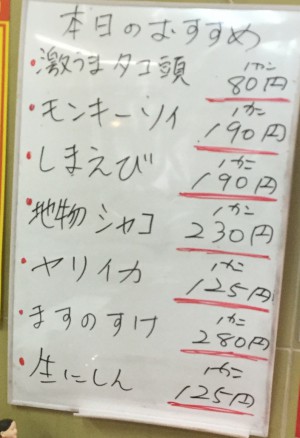 本日のおすすめ
・激うまタコ頭 1カン 80円
・モンキーソイ 1カン 190円
・しまえび 1カン 190円
・地物シャコ 1カン 230円
・ヤリイカ 1カン 125円
・ますのすけ 1カン 280円
・生にしん 1カン 125円